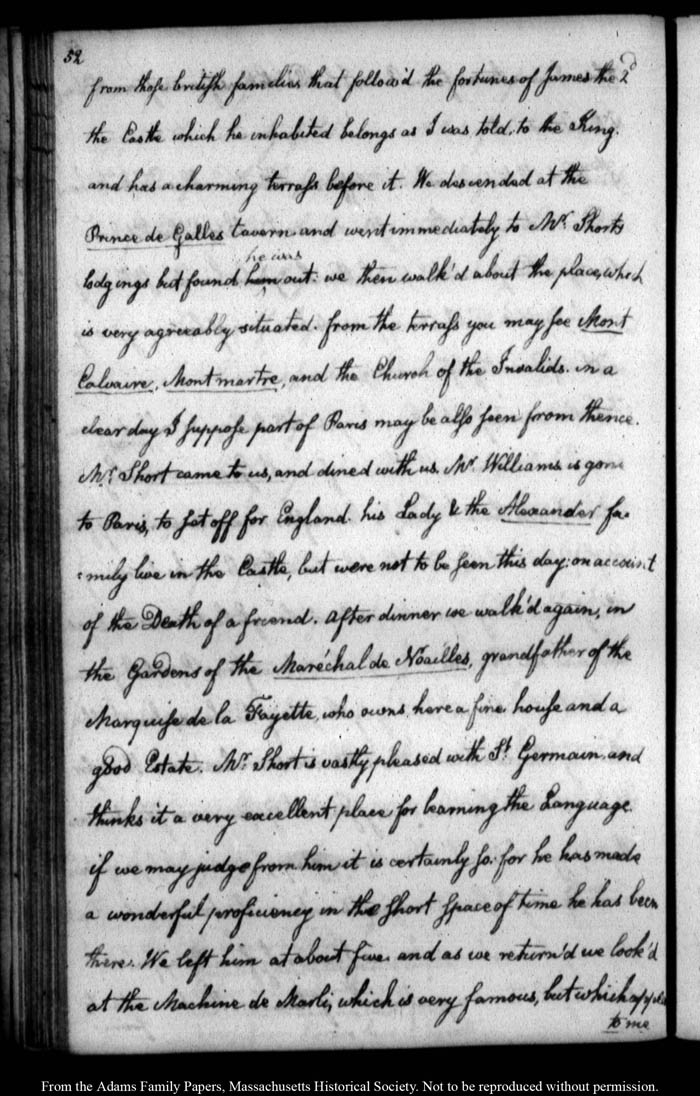 52
from those british families that follow'd the fortunes of James the 2d
the Castle which he inhabited belongs as I was told, to the King.
and has a charming terrass before it. We descended at the
Prince de Galles tavern and went immediately to Mr. Shorts
he was
lodgings but found him out. we then walk'd about the place, which
is very agreeably situated. from the terrass you may see Mont
Calvaire, Montmartre, and the Church of the Invalids. in a
clear day I suppose part of Paris may be also seen from thence.
Mr. Short came to us, and dined with us. Mr. Williams is gone
to Paris, to set off for England. his Lady & the Alexander fa=
=mily live in the Castle, but were not to be seen this day: on account
of the Death of a friend. after dinner we walk'd again, in
the Gardens of the Maréchal de Noailles, grandfather of the
Marquise de la Fayette, who owns here a fine house and a
good Estate. Mr. Short is vastly pleased with St. Germain, and
thinks it a very excellent place for learning the Language.
if we may judge from him it is certainly so. for he has made
a wonderful proficiency in the short space of time he has been
there. We left him at about five. and as we return'd we look'd
at the Machine de Marli, which is very famous, but which
to me
From the Adams Family Papers, Massachusetts Historical Society. Not to be reproduced without permission.